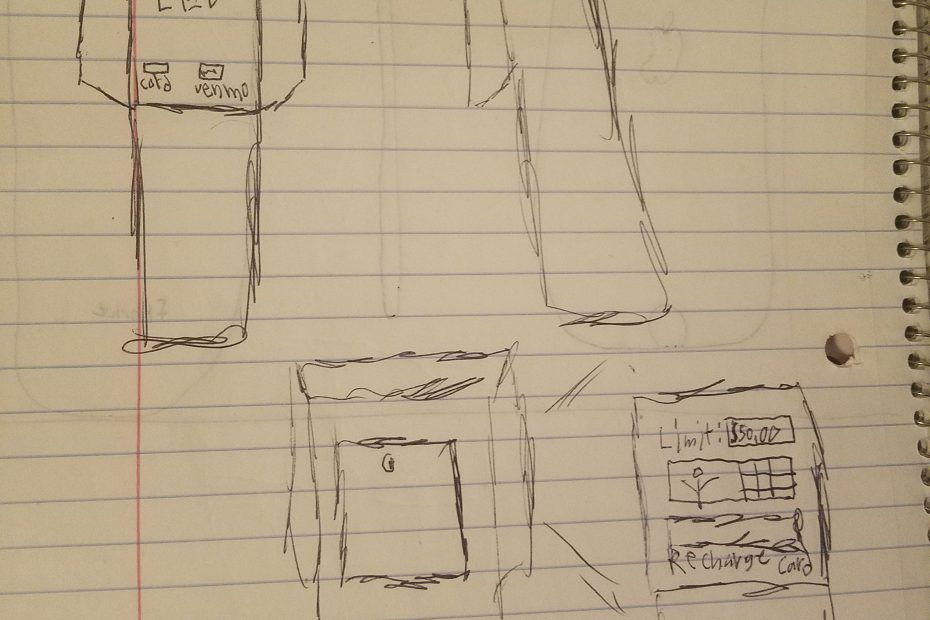 card venmo
Limit: $50.00
Recharge card